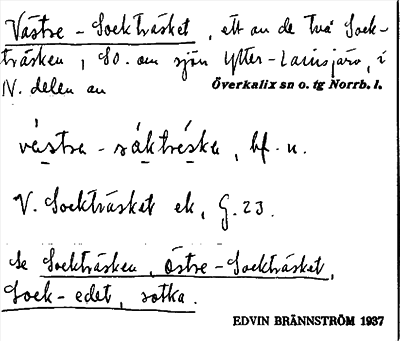 Västre-Sockträsket, ett av de två Sock-
träsken, SO. om sjön Ytter-Lansjärv, i
N. delen av Överkalix sn o. tg Norrb. l.
västra-såkträska, bf. n.
V. Sockträsket ek, G. 23.
Se Sockträsken, Östre-Sockträsket,
Sock-edet, sotka.
EDVIN BRÄNNSTRÖM 1937